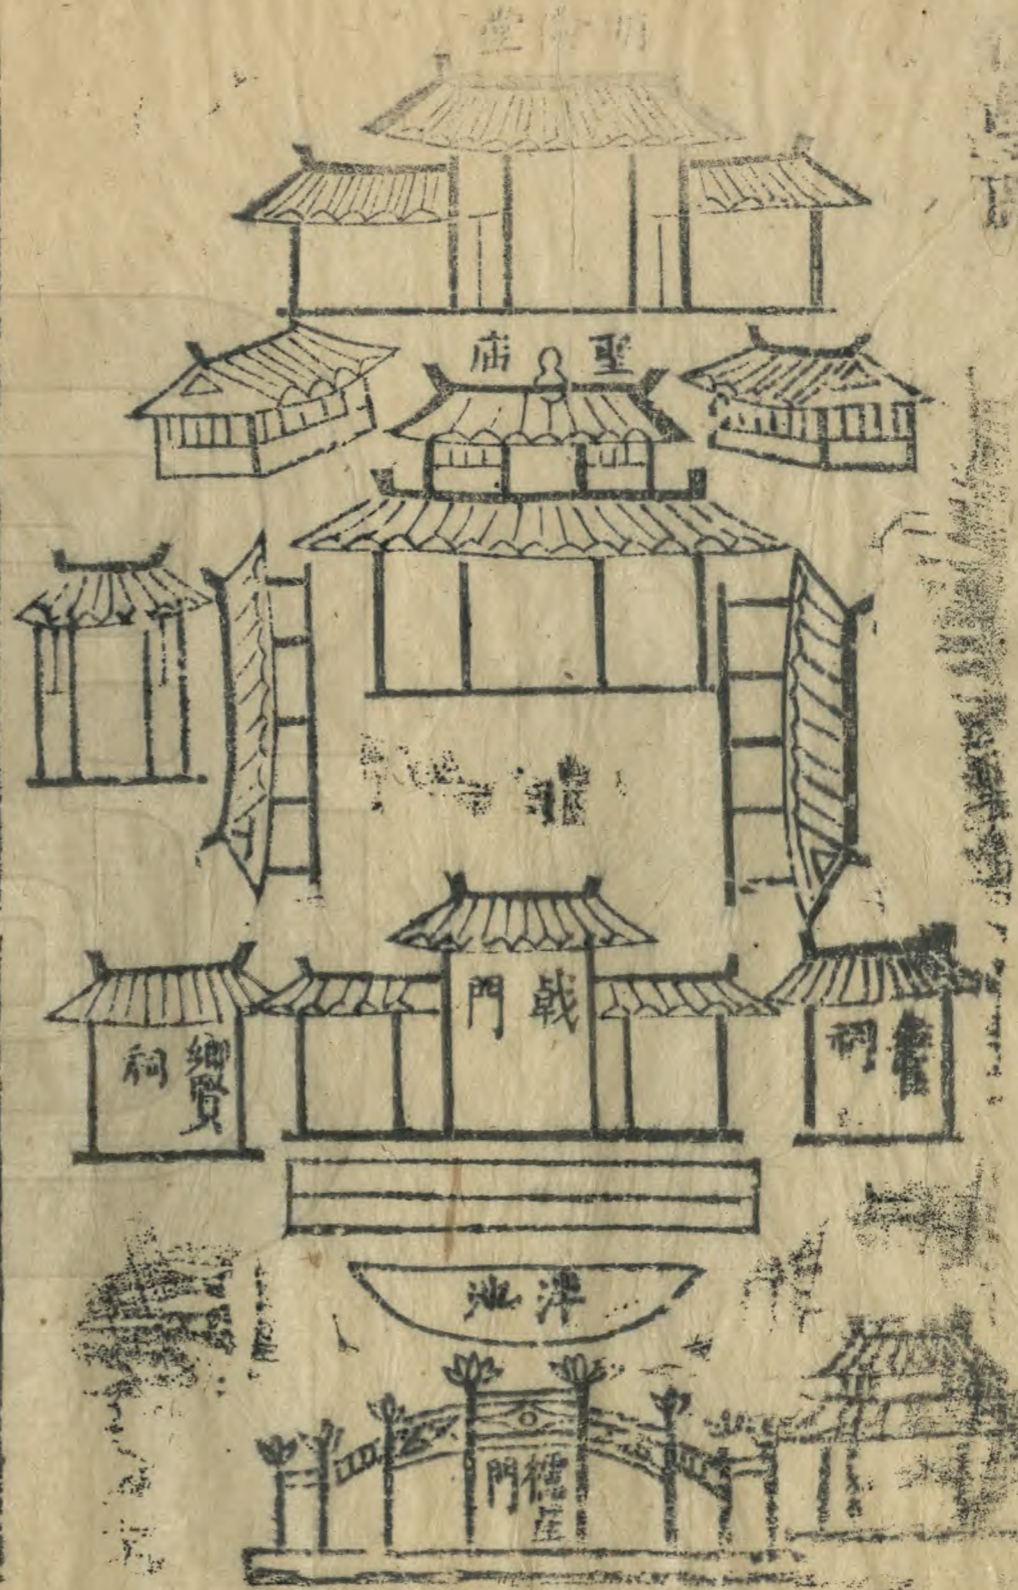 明倫堂
聖庙
戟門
鄉賢祠
祠
泮池
櫺星門